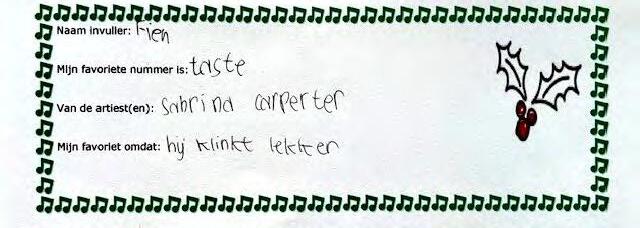 Naam invuller: Fien
Mijn favoriete nummer is: taste
Van de artiest(en): sabrina carperter
Mijn favoriet omdat: hij klinkt lekker